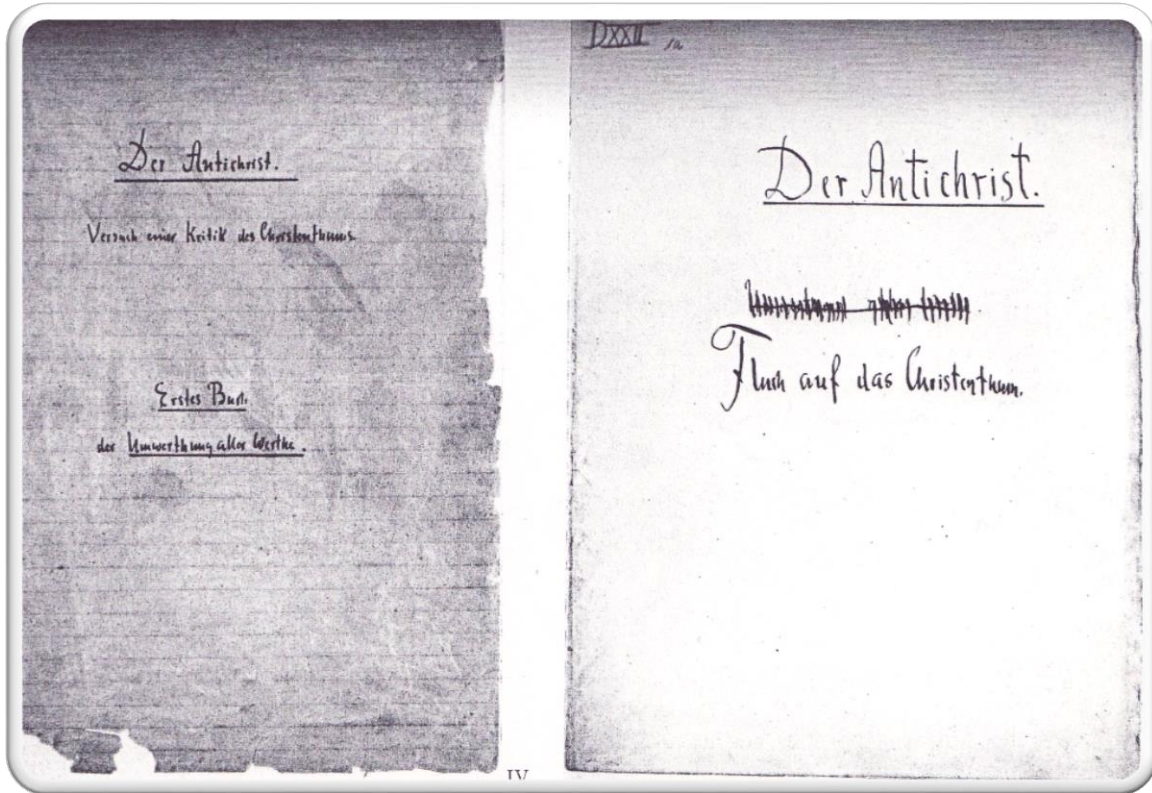 Der Antichrist.
Versuch einer Kritik des Christenthums.
Erstes Buch
der Umwerthung aller Werthe.
DXXII
Der Antichrist.
Umwerthung aller Werthe
Fluch auf das Christenthum.
IV